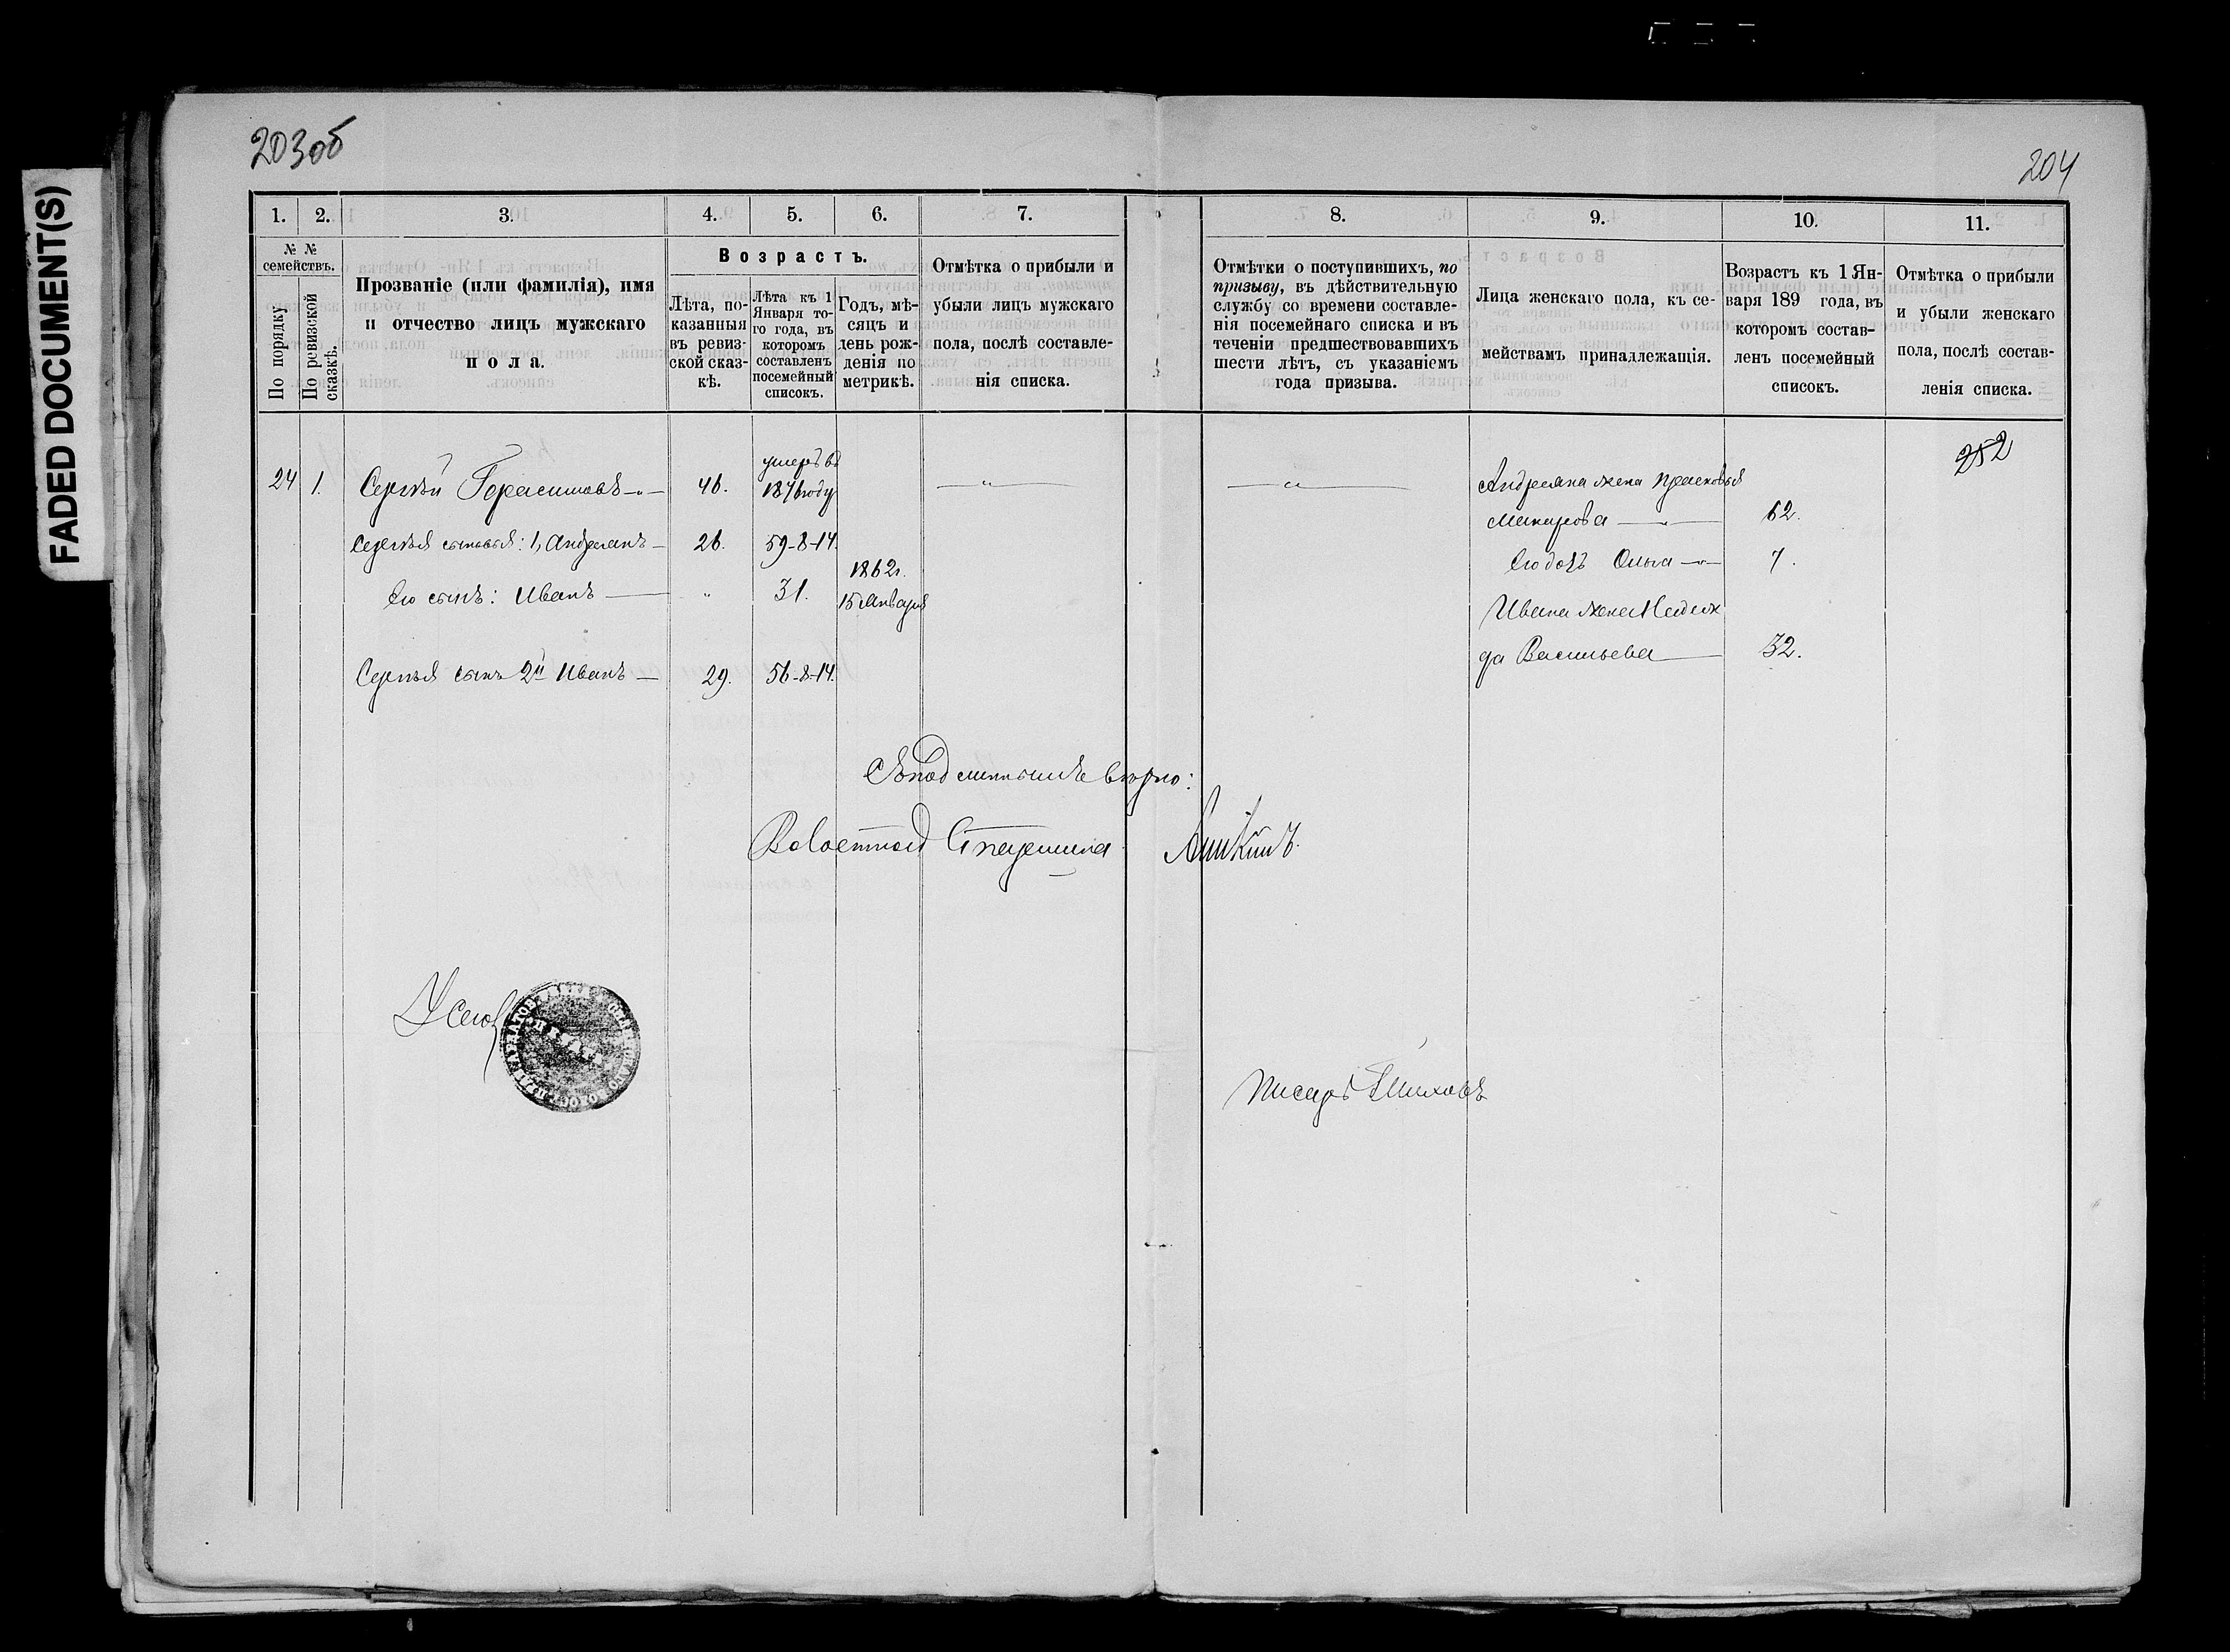 FADED DOCUMENT(S)
203об
204
1.
2.
3.
4.
5.
6.
7.
8.
9.
10.
11.
№ №
семействъ.
По порядку
По ревизской
сказкѣ.
Прозваніе (или фамилія), имя
и отчество лицъ мужскаго
пола.
Возрастъ.
Лѣта, по-
казанныя
въ ревиз-
ской сказ-
кѣ.
Лѣта къ 1
Января то-
го года, въ
которомъ
составленъ
посемейный
списокъ.
Годъ, мѣ-
сяцъ и
день рож-
денія по
метрикѣ.
Отмѣтка о прибыли и
убыли лицъ мужскаго
пола, послѣ составле-
нія списка.
Отмѣтки о поступившихъ, по
призыву, въ дѣйствительную
службу со времени составле-
нія посемейнаго списка и въ
теченіи предшествовавшихъ
шести лѣтъ, съ указаніемъ
года призыва.
Лица женскаго пола, къ се-
мействамъ принадлежащія.
Возрастъ къ 1 Ян-
варя 189 года, въ
которомъ состав-
ленъ посемейный
списокъ.
Отмѣтка о прибыли
и убыли женскаго
пола, послѣ состав-
ленія списка.
252
24 1. Сергѣй Герасимовъ 46. умеръ въ
году
Сергѣя сыновья: 1, Андреянъ 26. 59-8-14.
Его сынъ: Иванъ " 31. 1862г.
15 Января
Сергѣя сынъ 2й Иванъ 29. 56-8-14.
Андреяна жена Прасковья
Макарова 62.
Его дочь Ольга 7.
Ивана жена Надеж
да Васильева 32.
вѣрно:
Волостной Старшина
Писарь